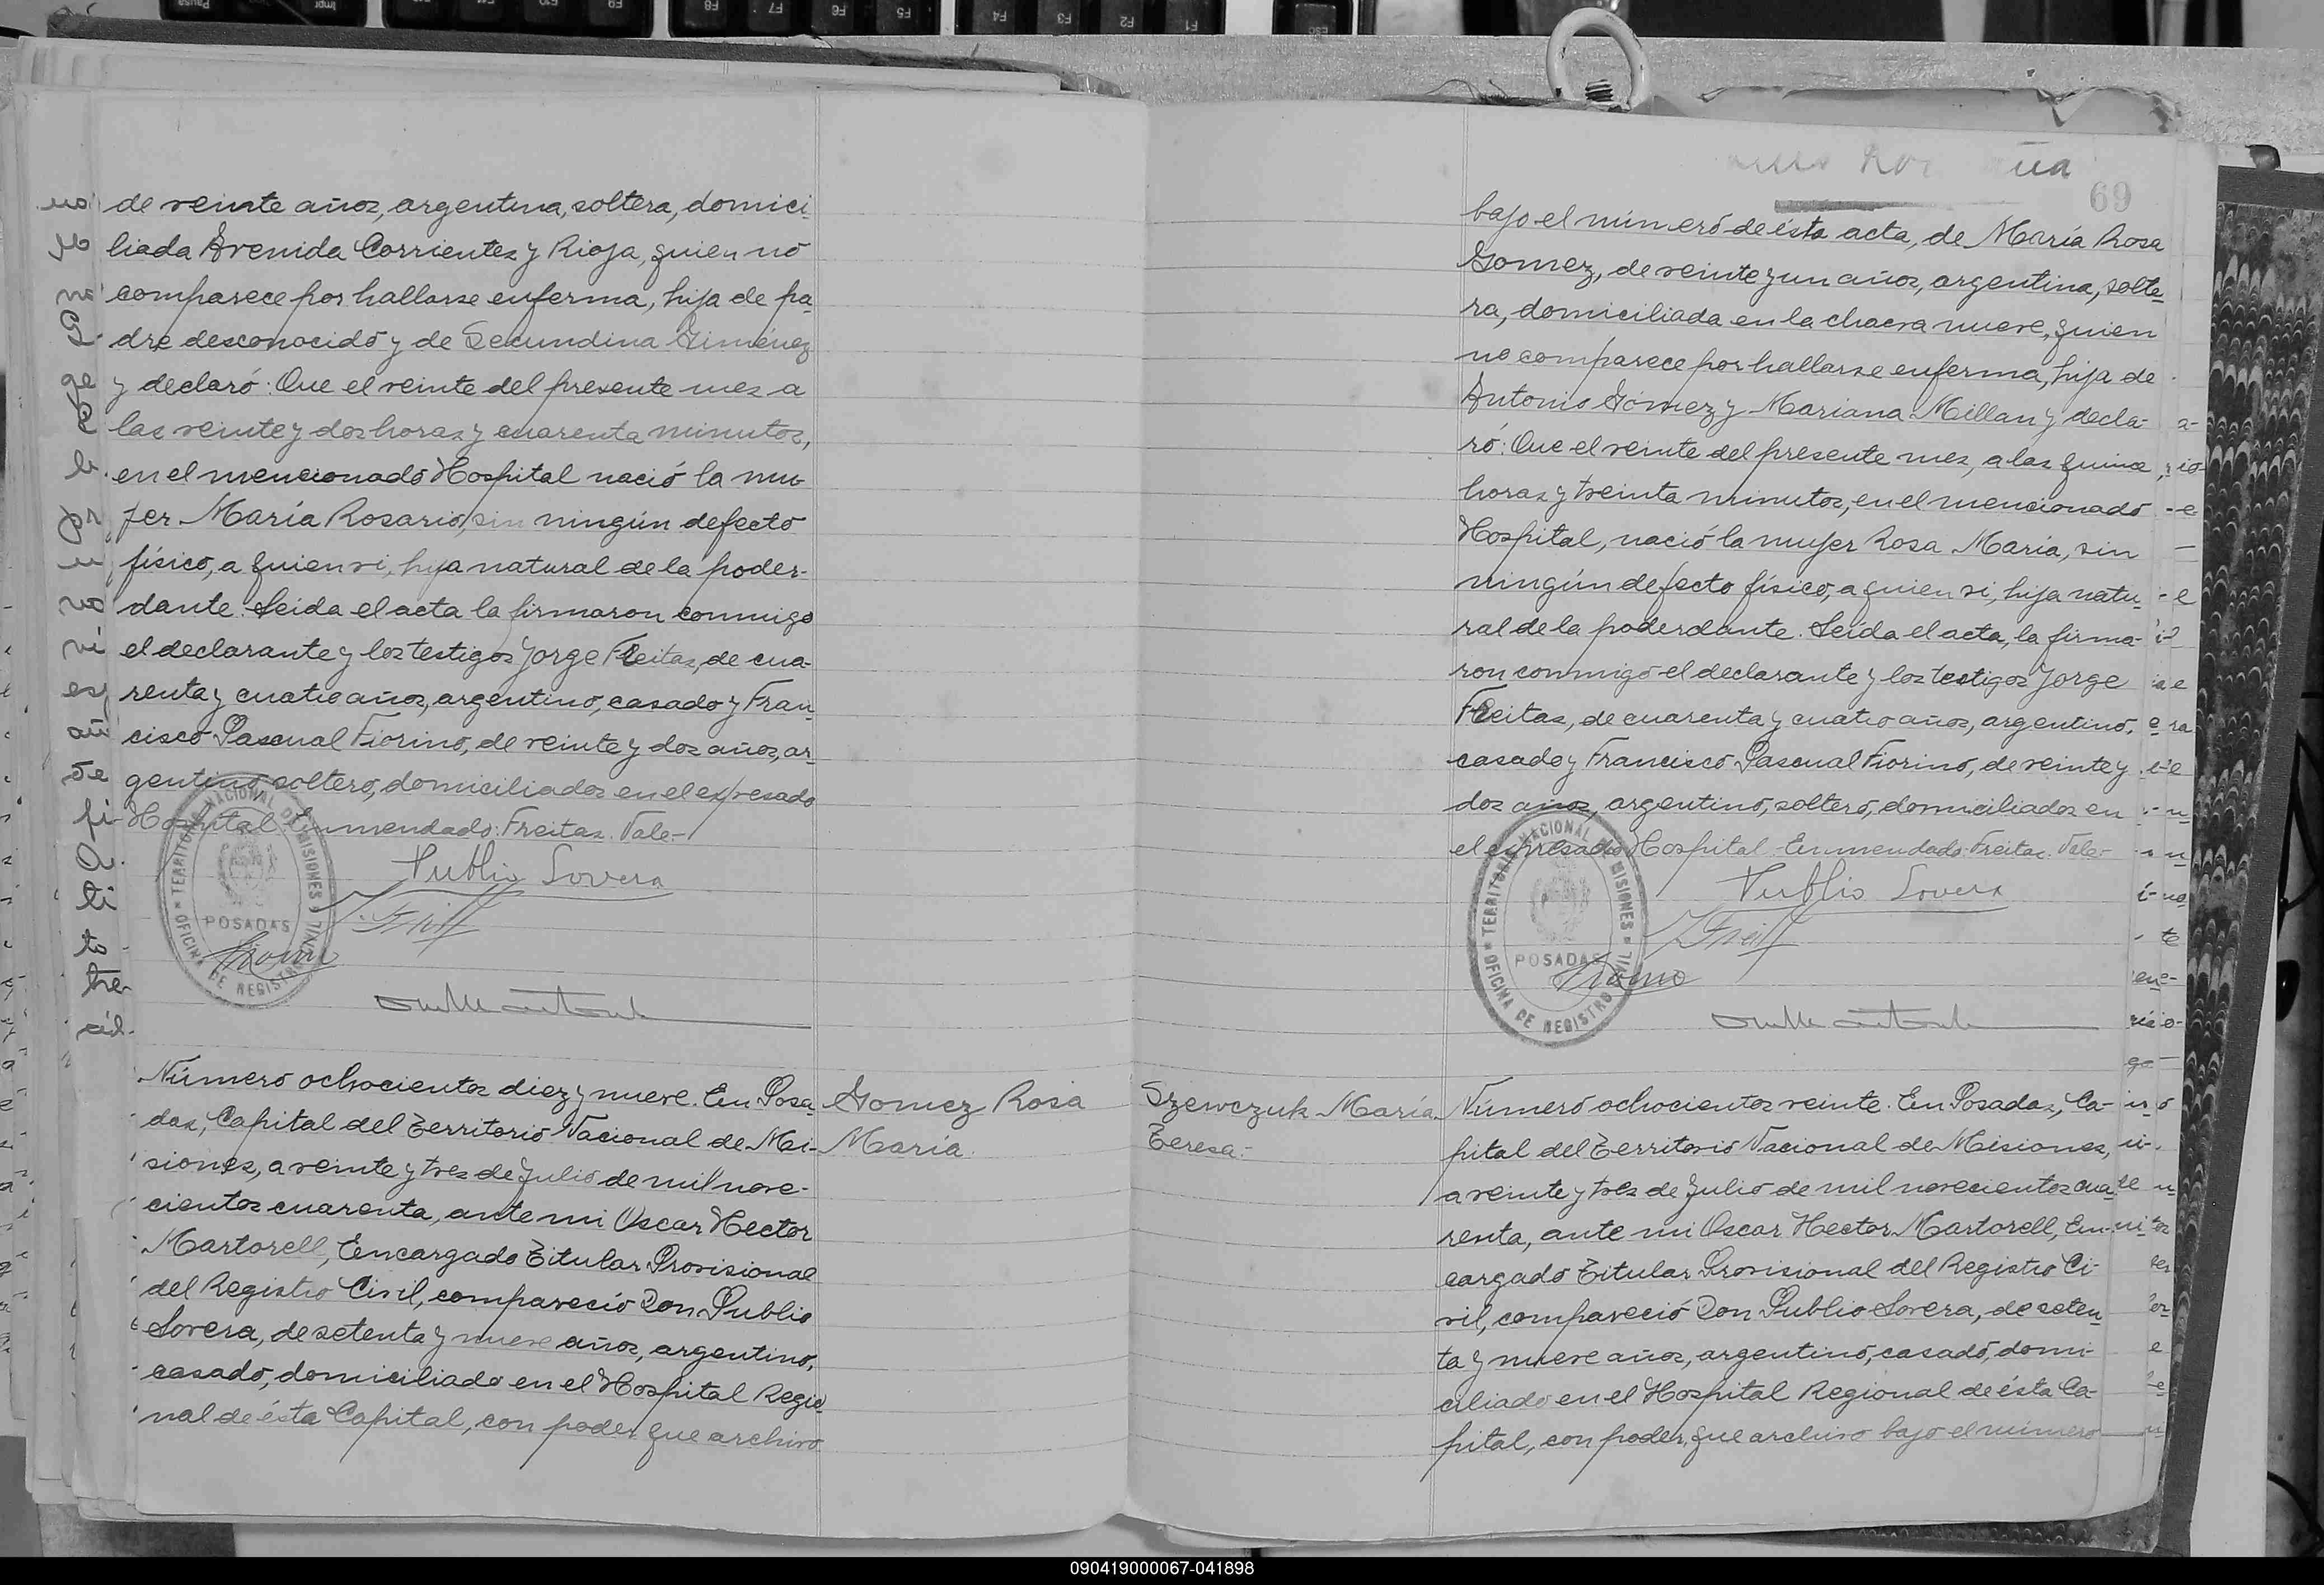 de veinte años, argentina, soltera, domici-
liada Avenida Corrientes y Rioja, quien no
comparece por hallarse enferma, hija de pa-
dre desconocido y de Secundina Giménez
y declaró: Que el veinte del presente mes a
las veinte y dos horas y cuarenta minutos,
en el mencionado Hospital nació la mu-
jer María Rosario, sin ningún defecto
físico, a quien vi, hija natural de la poder-
dante. Leida el acta la firmaron conmigo
el declarante y los testigos Jorge Freitas, de cua-
renta y cuatro años, argentino, casado y Fran-
cisco Pascual Fiorino, de veinte y dos años, ar-
gentino, soltero, domiciliados en el expresado
Hospital. Enmendado: Freitas. Vale.-
Publio Lovera
TERRITORIO NACIONAL DE MISIONES
POSADAS
OFICINA DE REGISTRO CIVIL
Número ochocientos diez y nueve. En Posa-
das, Capital del Territorio Nacional de Mi-
siones, a veinte y tres de Julio de mil nove-
cientos cuarenta, ante mi Oscar Hector
Martorell, Encargado Titular Provisional
del Registro Civil, compareció Don Publio
Lovera, de setenta y nueve años, argentino,
casado, domiciliado en el Hospital Regio-
nal de ésta Capital, con poder que archivo
Gomez Rosa
María.
69
bajo el número de ésta acta, de María Rosa
Gomez, de veinte y un años, argentina, solte-
ra, domiciliada en la chacra nueve, quien
no comparece por hallarse enferma, hija de
Antonio Gómez y Mariana Millan y decla-
ró: Que el veinte del presente mes, a las quince
horas y treinta minutos, en el mencionado
Hospital, nació la mujer Rosa María, sin
ningún defecto físico, a quien vi, hija natu-
ral de la poderdante. Leída el acta, la firma-
ron conmigo el declarante y los testigos Jorge
Freitas, de cuarenta y cuatro años, argentino,
casado y Francisco Pascual Fiorino, de veinte y
dos años, argentino, soltero, domiciliados en
el expresado Hospital. Enmendado: Freitas. Vale.-
Publio Lovera
TERRITORIO NACIONAL DE MISIONES
POSADAS
OFICINA DE REGISTRO CIVIL
Szewczuk María
Teresa.-
Número ochocientos veinte. En Posadas, Ca-
pital del Territorio Nacional de Misiones,
a veinte y tres de Julio de mil novecientos cua-
renta, ante mi Oscar Hector Martorell, En-
cargado Titular Provisional del Registro Ci-
vil, compareció Don Publio Lovera, de seten-
ta y nueve años, argentino, casado, domi-
ciliado en el Hospital Regional de ésta Ca-
pital, con poder, que archivo bajo el número
090419000067-041898